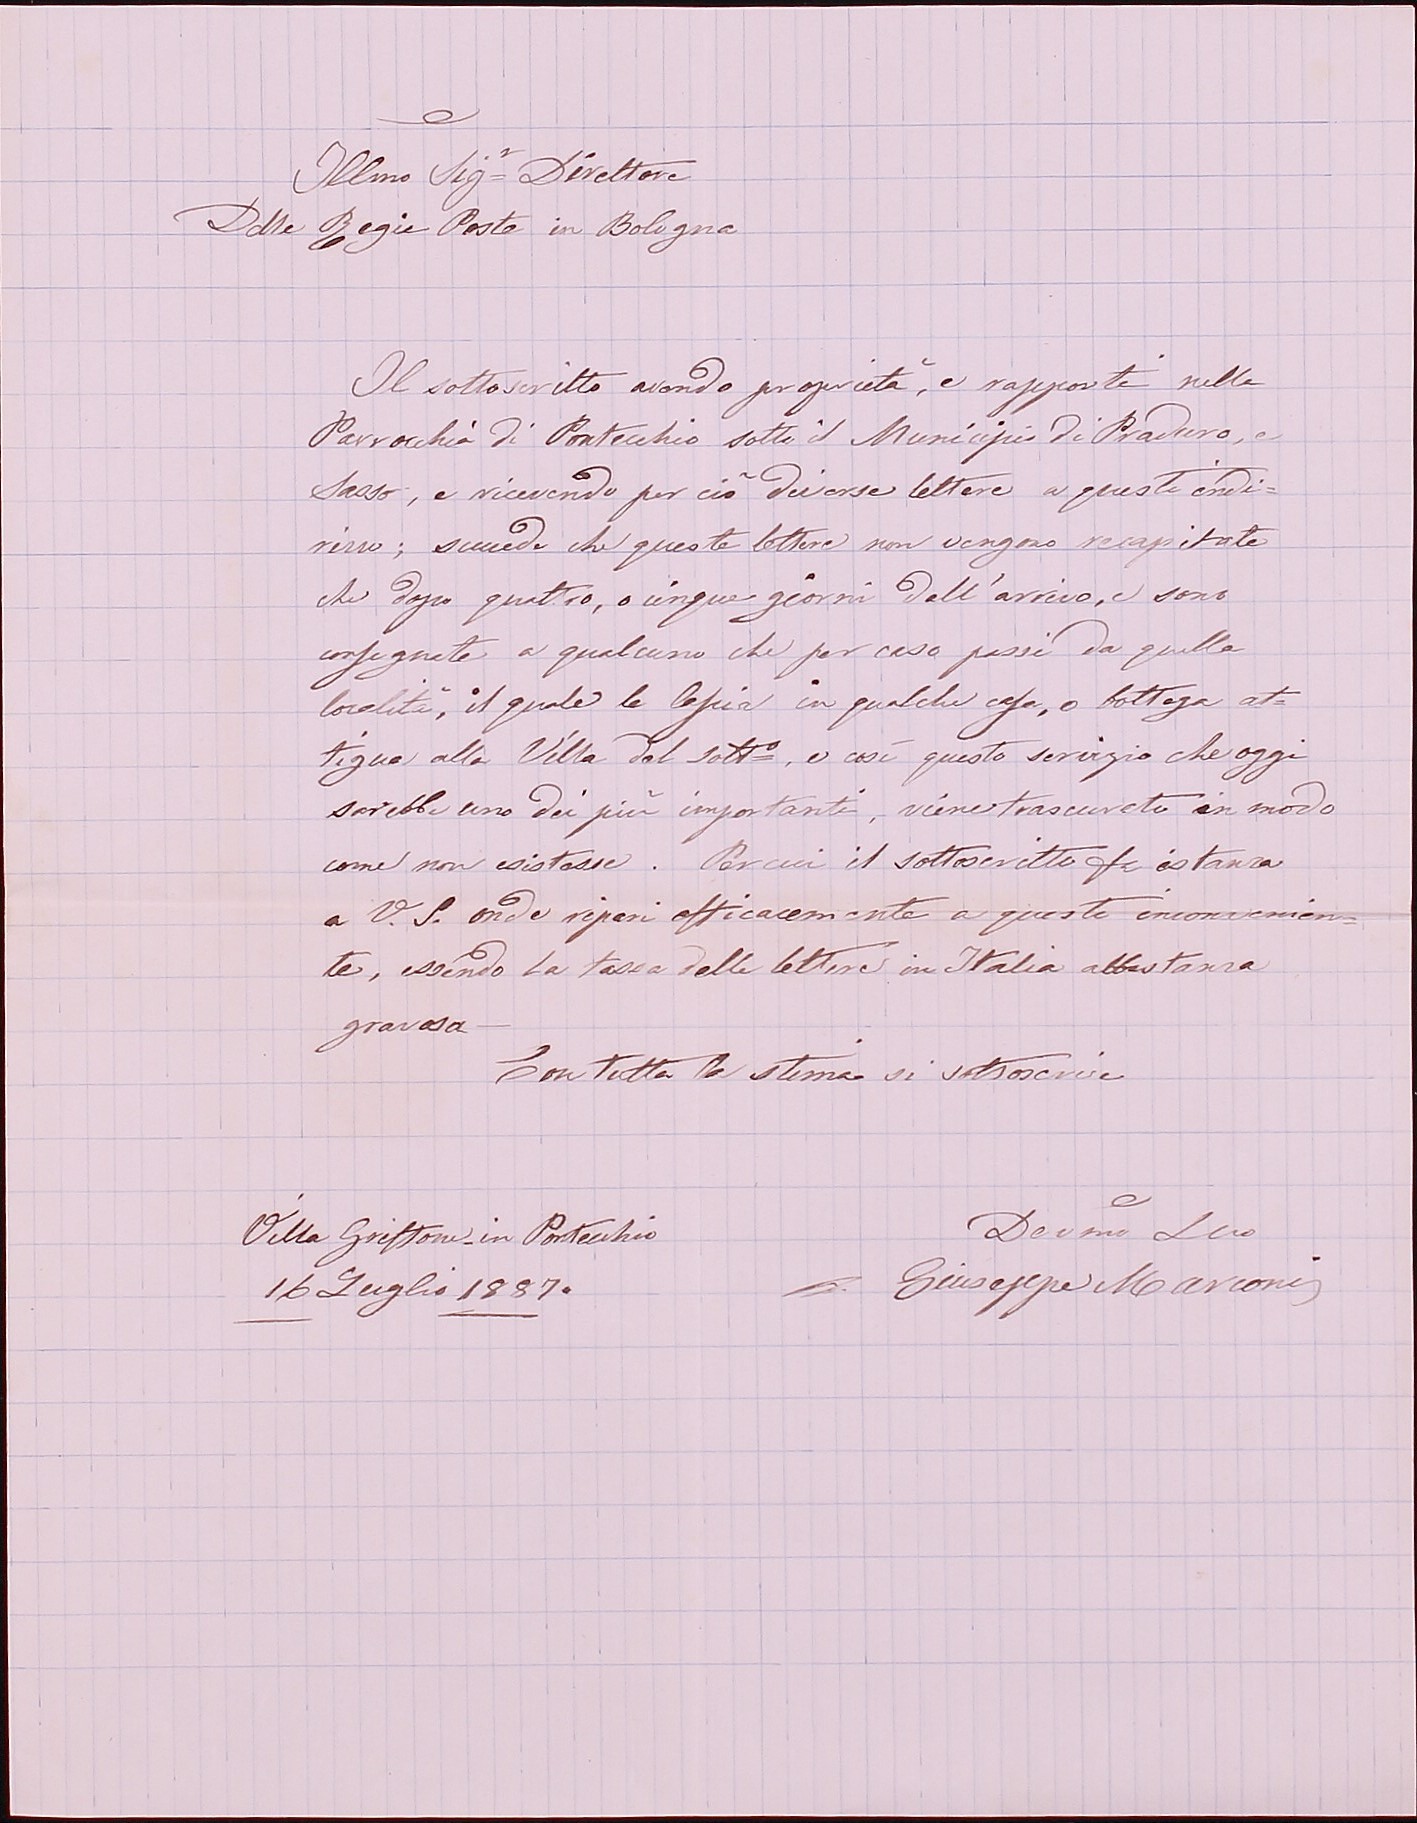 Illmo Sigr Direttore
Delle Regie Poste in Bologna
Il sottoscritto avendo proprietà, e rapporti nella
Parrocchia di Pontecchio sotto il Municipio di Praduro, e
Sasso, e ricevendo per ciò diverse lettere a questo indi=
rizzo; succede che queste lettere non vengono recapitate
che dopo quattro, o cinque giorni dall'arrivo, e sono
consegnate a qualcuno che per caso passi da quella
località, il quale le lascia in qualche casa, o bottega at=
tigua alla Villa del sotto, e così questo servizio che oggi
sarebbe uno dei più importanti, viene trascurato in modo
come non esistesse. Per cui il sottoscritto fa istanza
a V. S. onde ripari efficacemente a questo inconvenien=
te, essendo la tassa delle lettere in Italia abbastanza
gravosa —
Con tutta la stima si sottoscrive
Villa Griffone in Pontecchio
16 Luglio 1887.
Devmo Suo
Giuseppe Marconi